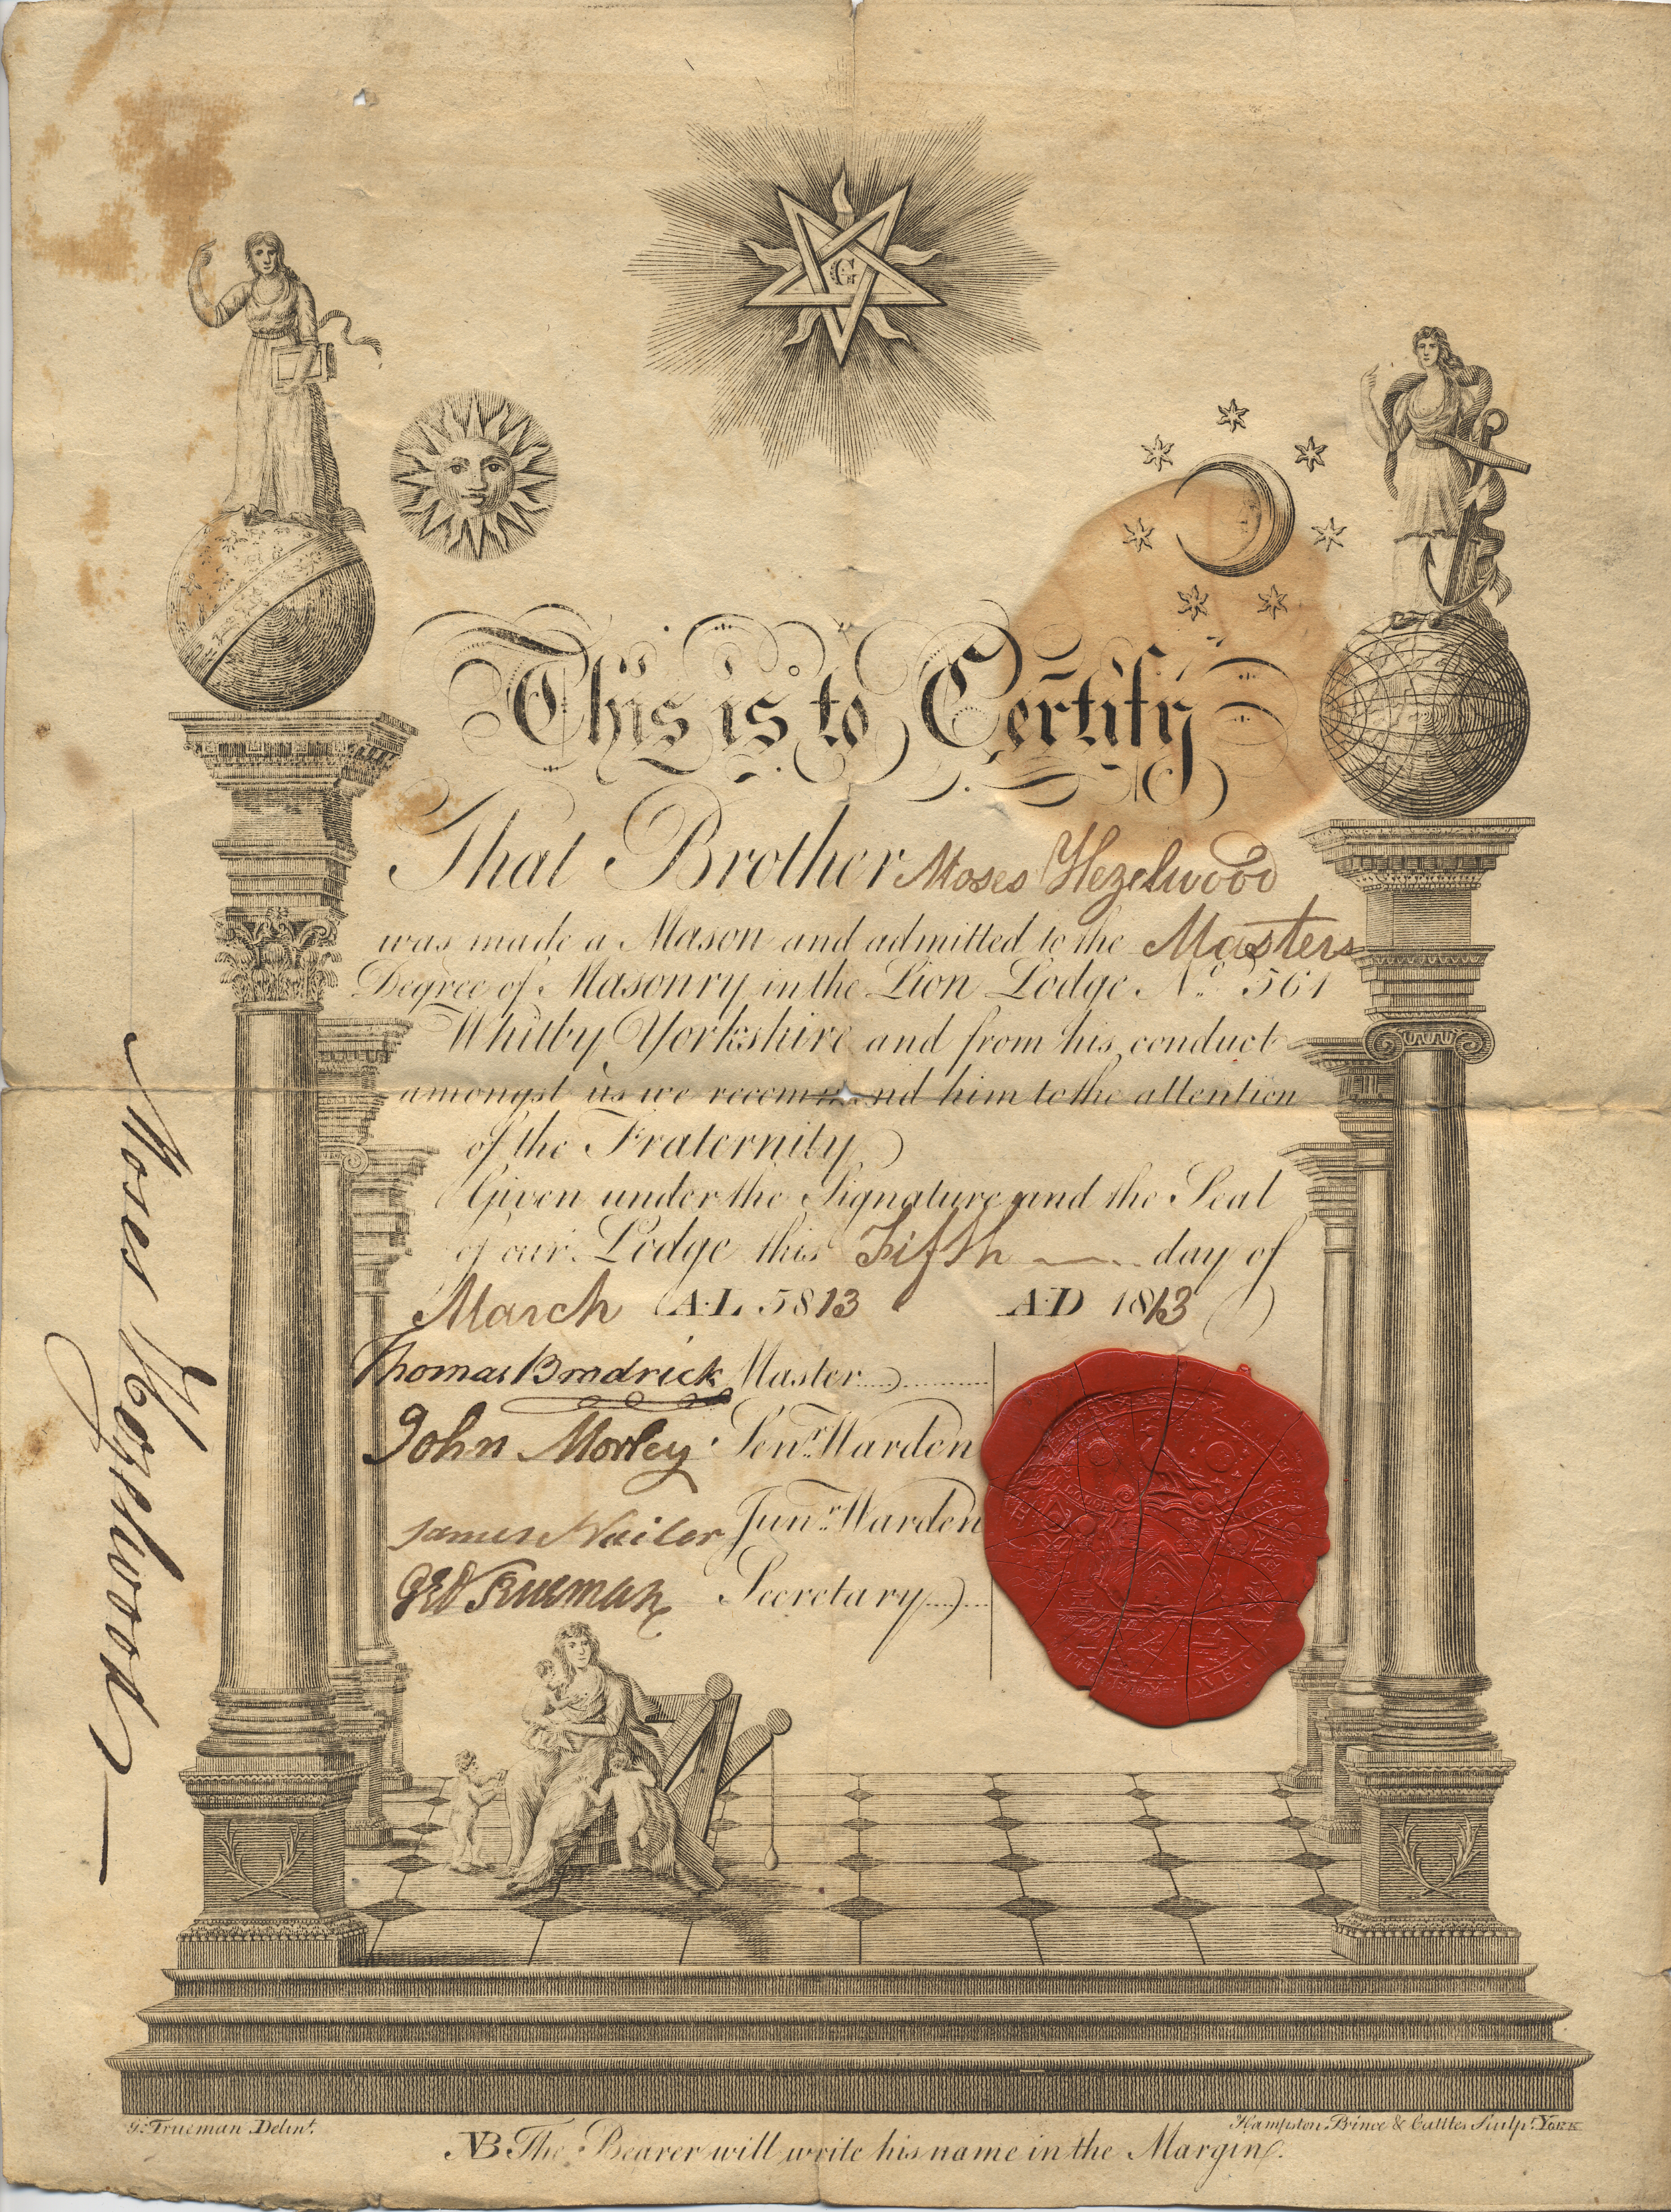 G
This is to Certify
That Brother Moses Hezelwood
was made a Mason and admitted to the Masters
Degree of Masonry in the Lion Lodge No. 561
Whitby Yorkshire and from his conduct
amongst us we recommend him to the attention
of the Fraternity
Given under the Signature and the Seal
of our Lodge this Fifth day of
March A.L 5813 A.D 1813
Thomas Brodrick Master
John Morley Senr. Warden
James Nailor Junr. Warden
Geo Trueman Secretary
Moses Hezelwood
G. Trueman Delint.
Hampston, Prince & Cattles Sculpt. York
NB The Bearer will write his name in the Margin.